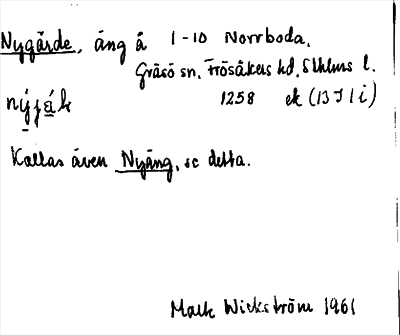 Nygärde, äng å 1-10 Norrboda.
Gräsö sn, Frösåkers hd, Sthlms l.
1258 ek (13 I 1 i)
Kallas även Nyäng, se detta.
Mats Wickström 1961